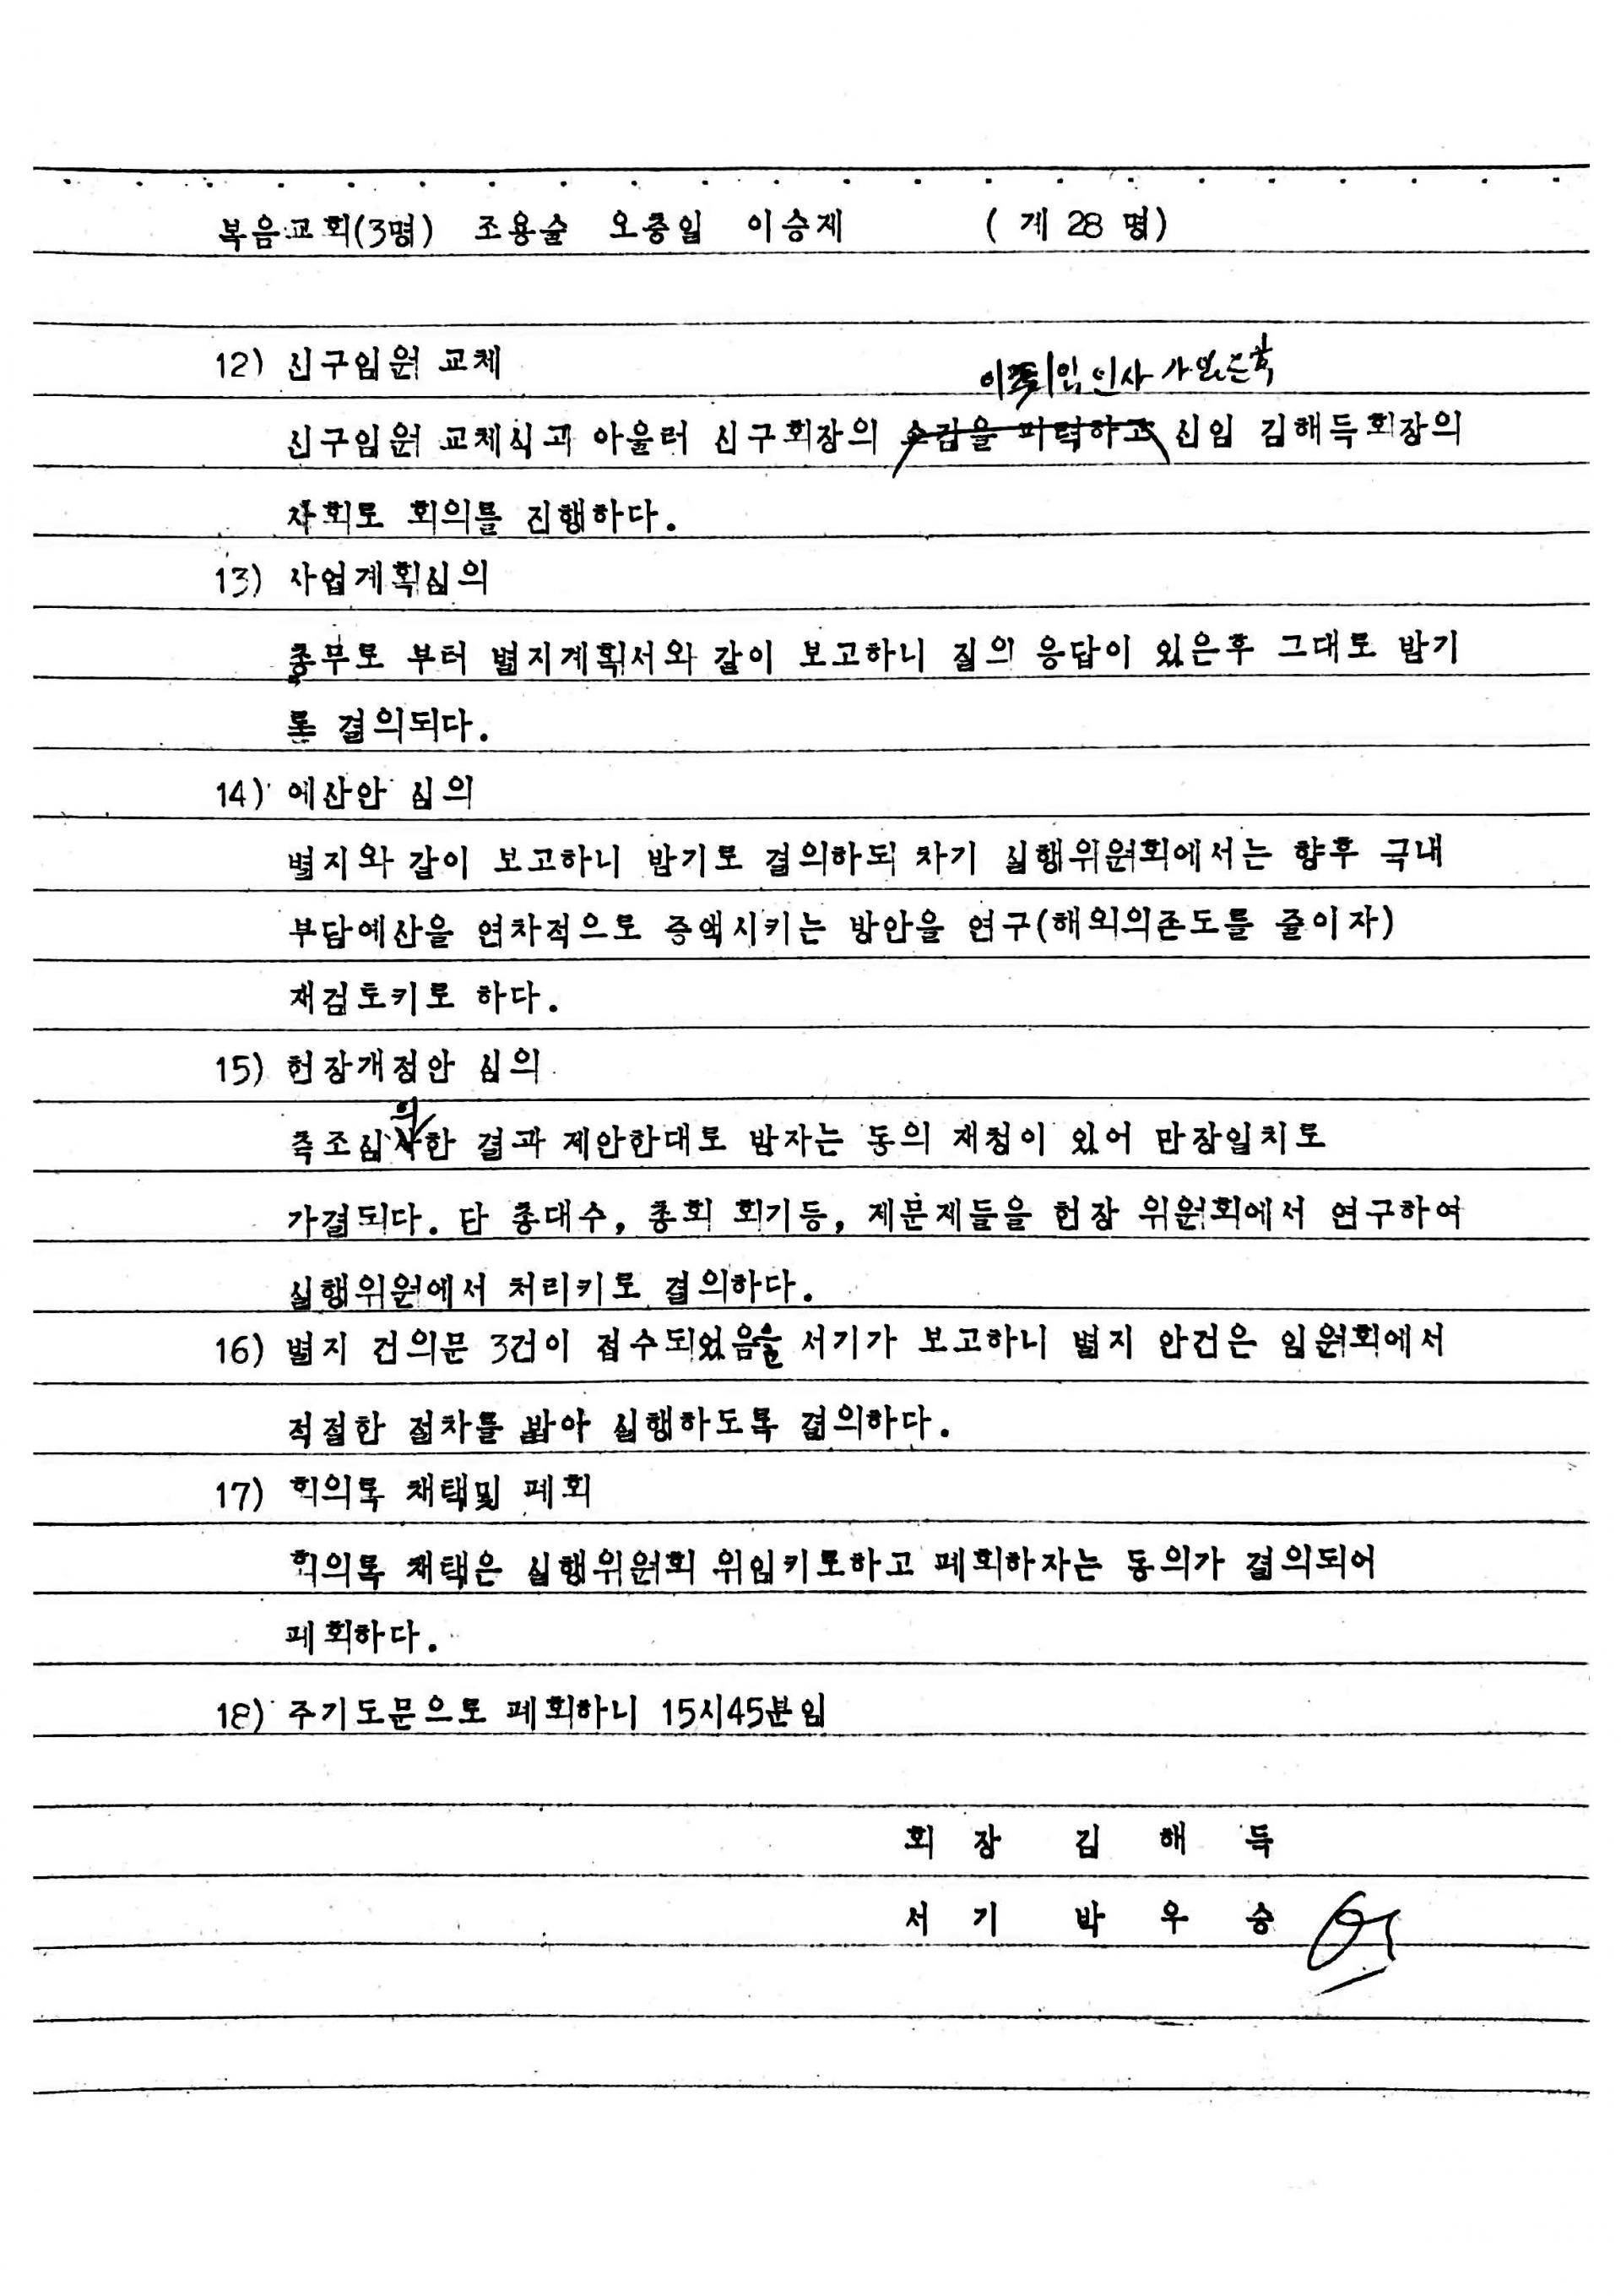 복음교회(3명) 조용술 오충일 이승재 ( 계 28 명)
12) 신구임원 교체
이취임 인사가 있은후
신구임원 교체식과 아울러 신구회장의 소감을 피력하고 신임 김해득회장의
사회로 회의를 진행하다.
13) 사업계획심의
총무로 부터 별지계획서와 같이 보고하니 질의 응답이 있은후 그대로 받기
로 결의되다.
14) 예산안 심의
별지와 같이 보고하니 받기로 결의하되 차기 실행위원회에서는 향후 국내
부담예산을 연차적으로 증액시키는 방안을 연구(해외의존도를 줄이자)
재검토키로 하다.
15) 헌장개정안 심의
의
축조심사한 결과 제안한대로 받자는 동의 재청이 있어 만장일치로
가결되다. 단 총대수, 총회 회기등, 제문제들을 헌장 위원회에서 연구하여
실행위원에서 처리키로 결의하다.
16) 별지 건의문 3건이 접수되었음을 서기가 보고하니 별지 안건은 임원회에서
적절한 절차를 밟아 실행하도록 결의하다.
17) 회의록 채택및 폐회
회의록 채택은 실행위원회 위임키로하고 폐회하자는 동의가 결의되어
폐회하다.
18) 주기도문으로 폐회하니 15시45분임
회 장 김 해 득
서 기 박 우 승